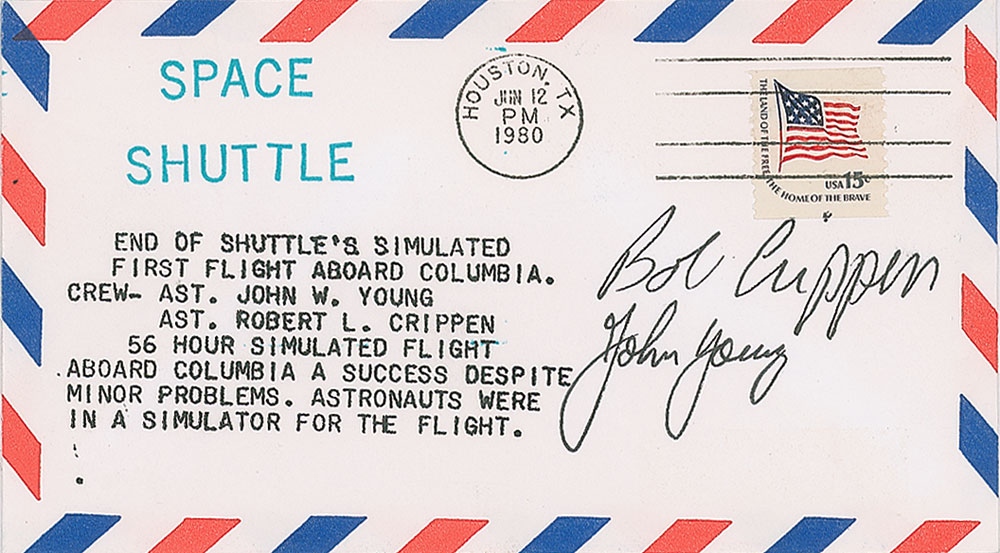 SPACE
SHUTTLE
HOUSTON, TX
JUN 12
PM
1980
THE LAND OF THE FREE THE HOME OF THE BRAVE
USA 15c
END OF SHUTTLE'S SIMULATED
FIRST FLIGHT ABOARD COLUMBIA.
CREW- AST. JOHN W. YOUNG
AST. ROBERT L. CRIPPEN
56 HOUR SIMULATED FLIGHT
ABOARD COLUMBIA A SUCCESS DESPITE
MINOR PROBLEMS. ASTRONAUTS WERE
IN A SIMULATOR FOR THE FLIGHT.
Bob Crippen
John Young